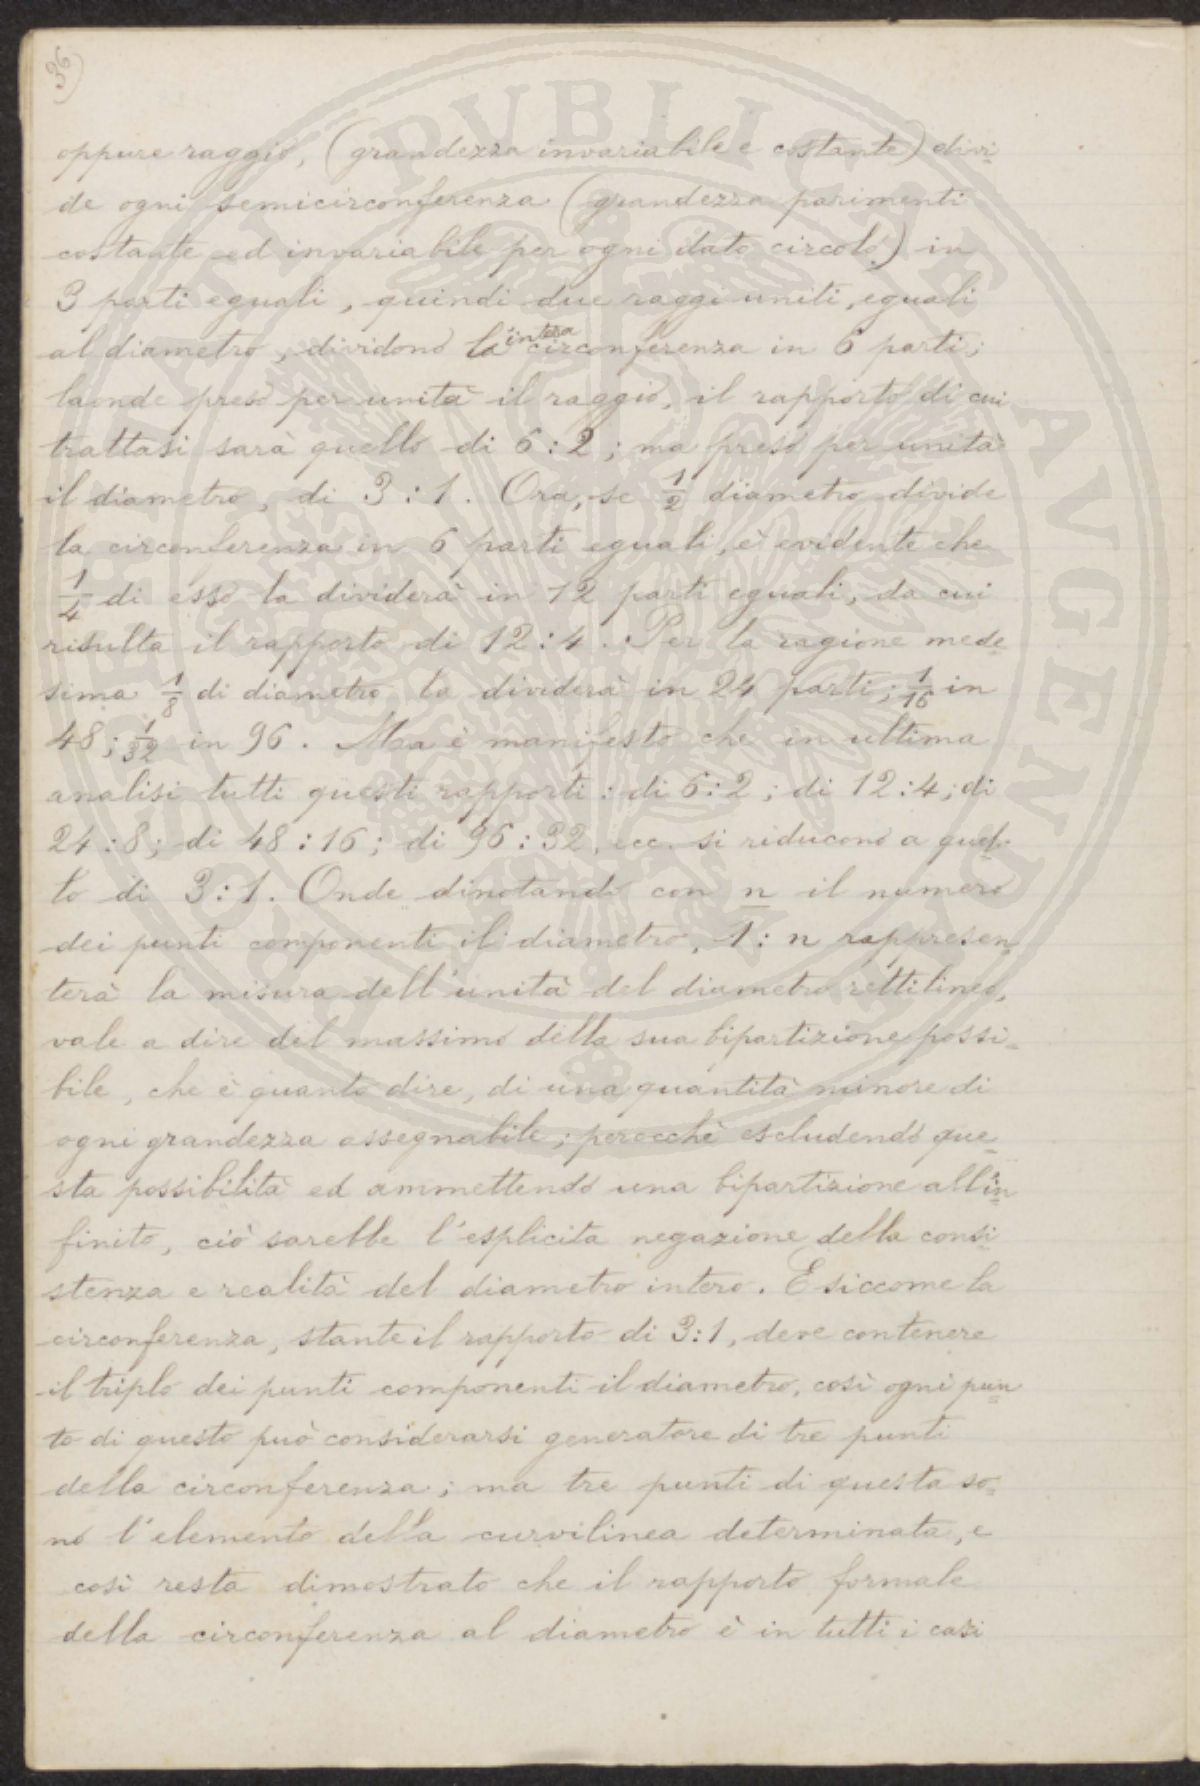 36)
oppure raggio, (grandezza invariabile e costante) divi=
de ogni semicirconferenza (grandezza parimenti
costante ed invariabile per ogni dato circolo) in
3 parti eguali, quindi due raggi uniti, eguali
al diametro, dividono la intera circonferenza in 6 parti;
laonde preso per unità il raggio, il rapporto di cui
trattasi sarà quello di 6:2; ma preso per unità
il diametro, di 3:1. Ora, se 1/2 diametro divide
la circonferenza in 6 parti eguali, è evidente che
1/4 di esso la dividerà in 12 parti eguali, da cui
risulta il rapporto di 12:4. Per la ragione mede=
sima 1/8 di diametro la dividerà in 24 parti; 1/16 in
48; 1/32 in 96. Ma è manifesto che in ultima
analisi tutti questi rapporti: di 6:2; di 12:4; di
24:8; di 48:16; di 96:32, ecc. si riducono a quel=
lo di 3:1. Onde dinotando con n il numero
dei punti componenti il diametro, 1:n rappresen=
terà la misura dell'unità del diametro rettilineo,
vale a dire del massimo della sua bipartizione possi=
bile, che è quanto dire, di una quantità minore di
ogni grandezza assegnabile; perocchè escludendo que=
sta possibilità ed ammettendo una bipartizione all'in=
finito, ciò sarebbe l'esplicita negazione della consi=
stenza e realità del diametro intero. E siccome la
circonferenza, stante il rapporto di 3:1, deve contenere
il triplo dei punti componenti il diametro, così ogni pun=
to di questo può considerarsi generatore di tre punti
della circonferenza; ma tre punti di questa so=
no l'elemento della curvilinea determinata, e
così resta dimostrato che il rapporto formale
della circonferenza al diametro è in tutti i casi